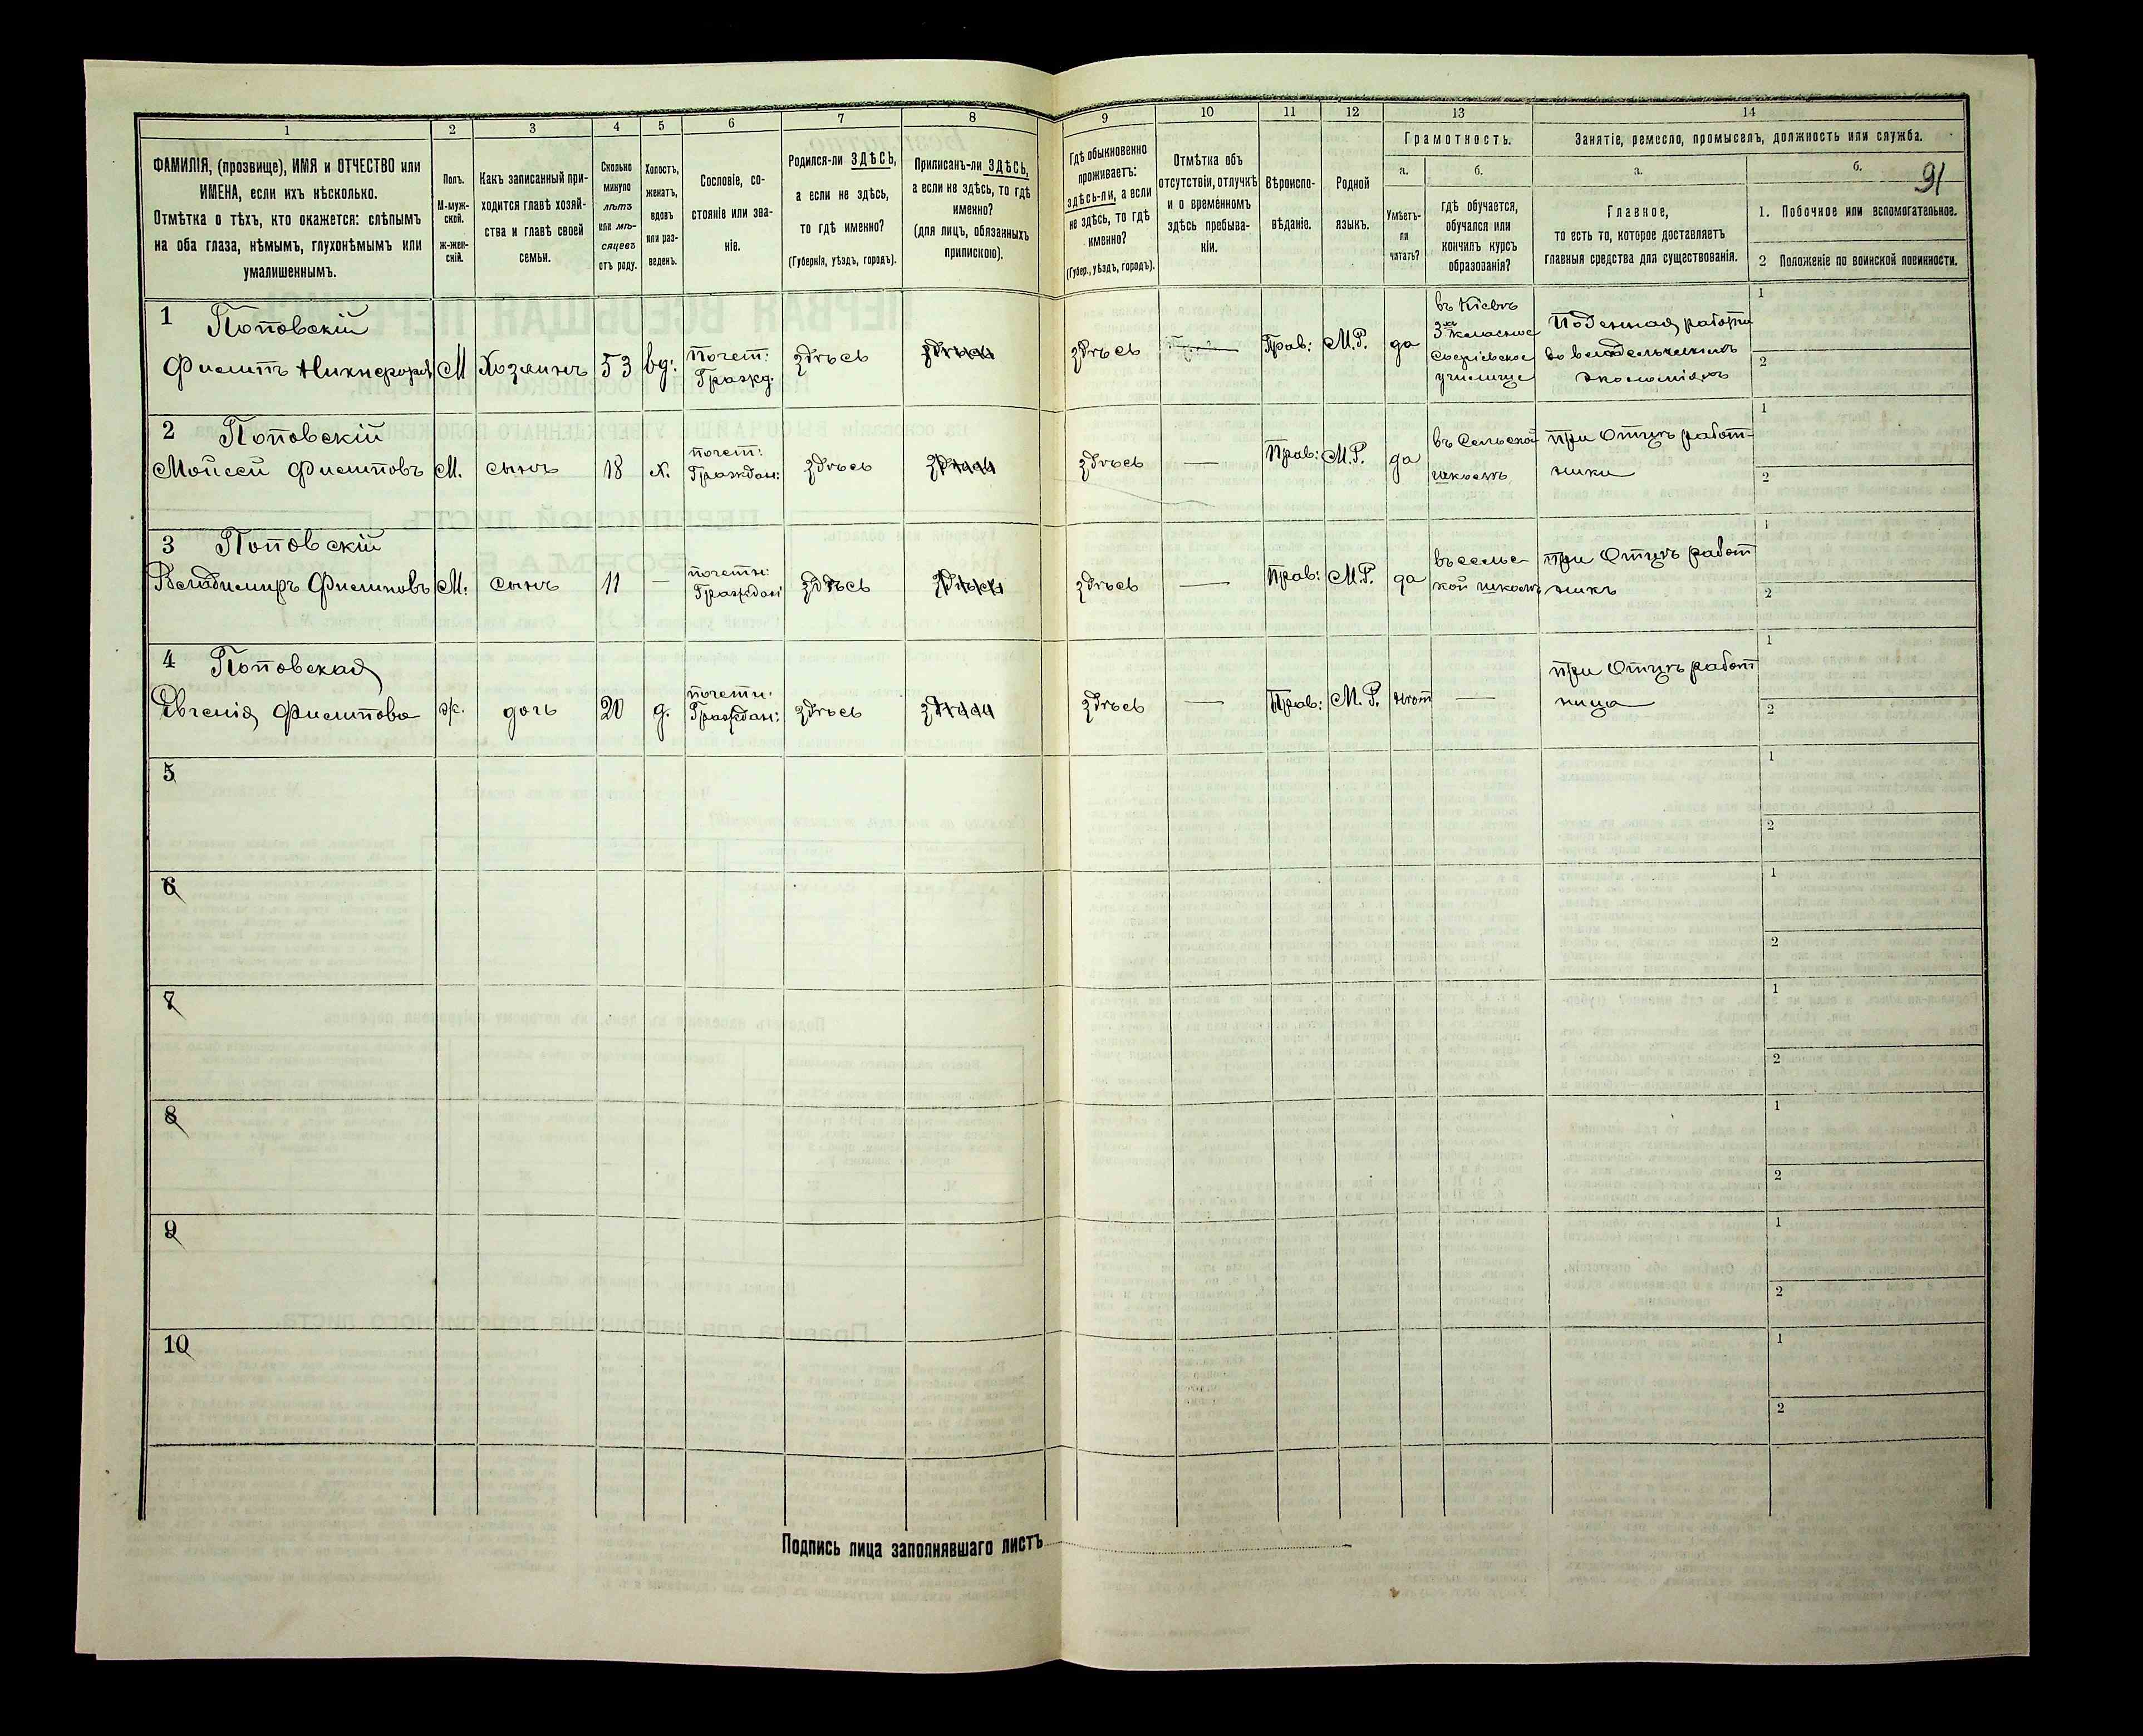 1 2 3 4 5 6 7 8 9 10 11 12 13 14
ФАМИЛІЯ, (прозвище), ИМЯ и ОТЧЕСТВО или
ИМЕНА, если ихъ нѣсколько.
Отмѣтка о тѣхъ, кто окажется: слѣпымъ
на оба глаза, нѣмымъ, глухонѣмымъ или
умалишеннымъ.
Полъ.
М-муж-
ской.
ж-жен-
скій.
Какъ записанный при-
ходится главѣ хозяй-
ства и главѣ своей
семьи.
Сколько
минуло
лѣтъ
или мѣ-
сяцевъ
отъ роду.
Холостъ,
женатъ,
вдовъ
или раз-
веденъ.
Сословіе, со-
стояніе или зва-
ніе.
Родился-ли ЗДѢСЬ,
а если не здѣсь,
то гдѣ именно?
(Губернія, уѣздъ, городъ).
Приписанъ-ли ЗДѢСЬ,
а если не здѣсь, то гдѣ
именно?
(для лицъ, обязанныхъ
припискою).
Гдѣ обыкновенно
проживаетъ:
здѣсь-ли, а если
не здѣсь, то гдѣ
именно?
(Губер., уѣздъ, городъ).
Отмѣтка объ
отсутствіи, отлучкѣ
и о временномъ
здѣсь пребыва-
ніи.
Вѣроиспо-
вѣданіе.
Родной
языкъ.
Грамотность.
а.
Умѣетъ-
ли
читать?
б.
гдѣ обучается,
обучался или
кончилъ курсъ
образованія?
Занятіе, ремесло, промыселъ, должность или служба.
а.
Главное,
то есть то, которое доставляетъ
главныя средства для существованія.
б.
91
1. Побочное или вспомогательное.
2 Положеніе по воинской повинности.
1 Поповскій
Филипъ Никифоровъ М Хозяинъ 53 вд: Почет: Гражд. здѣсь здѣсь здѣсь Прав: М.Р. да въ Кіевѣ
3хъ класное
Софіевское
училище
Поденная работа
во владельческихъ
экономіяхъ
1
2
2 Поповскій
Мойсей Филиповъ М. сынъ 18 х. почет: Граждан: здѣсь здѣсь — Прав: М.Р. да въ Сельской
школѣ
при Отцѣ работ-
ники
1
2
3 Поповскій
Владимиръ Филиповъ М. сынъ 11 — почетн: Граждан: здѣсь здѣсь здѣсь — Прав: М.Р. да въ сельс-
кой школѣ
при Отцѣ работ
никъ
1
2
4 Поповская
Евгенія Филипова ж. дочь 20 д. почетн: Граждан: здѣсь здѣсь — Прав: М.Р. нѣт —
при Отцѣ работ
ница
1
2
5
1
2
6
1
2
7
1
2
8
1
2
9
1
2
10
1
2
Подпись лица заполнявшаго листъ